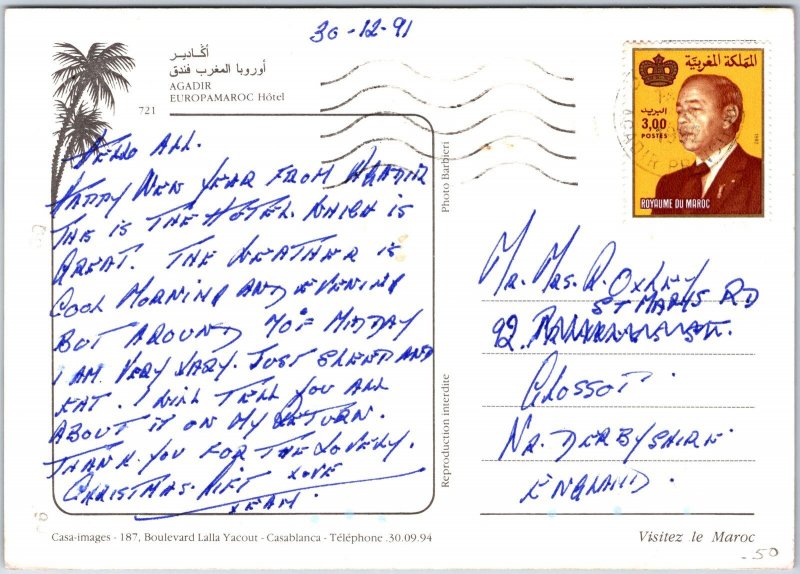 30-12-91
أكادير
أوروبا المغرب فندق
AGADIR
EUROPAMAROC Hôtel
721
HELLO ALL.
HAPPY NEW YEAR FROM AGADIR
THE IS THE HOTEL. WHICH IS
GREAT. THE WEATHER IS
COOL MORNING AND EVENING
BUT AROUND 70°F MIDDAY
I AM VERY LAZY. JUST SLEEP AND
EAT. I WILL TELL YOU ALL
ABOUT IT ON MY RETURN.
THANK. YOU FOR THE LOVELY.
CHRISTMAS. GIFT LOVE
Photo Barbieri
Reproduction interdite
المملكة المغربية
البريد
3,00
POSTES
1987
ROYAUME DU MAROC
Mr. Mrs. R. OXLEY
ST MARYS RD
92.
GLOSSOP.
NR. DERBYSHIRE
ENGLAND.
Casa-images - 187, Boulevard Lalla Yacout - Casablanca - Téléphone .30.09.94
Visitez le Maroc
.50